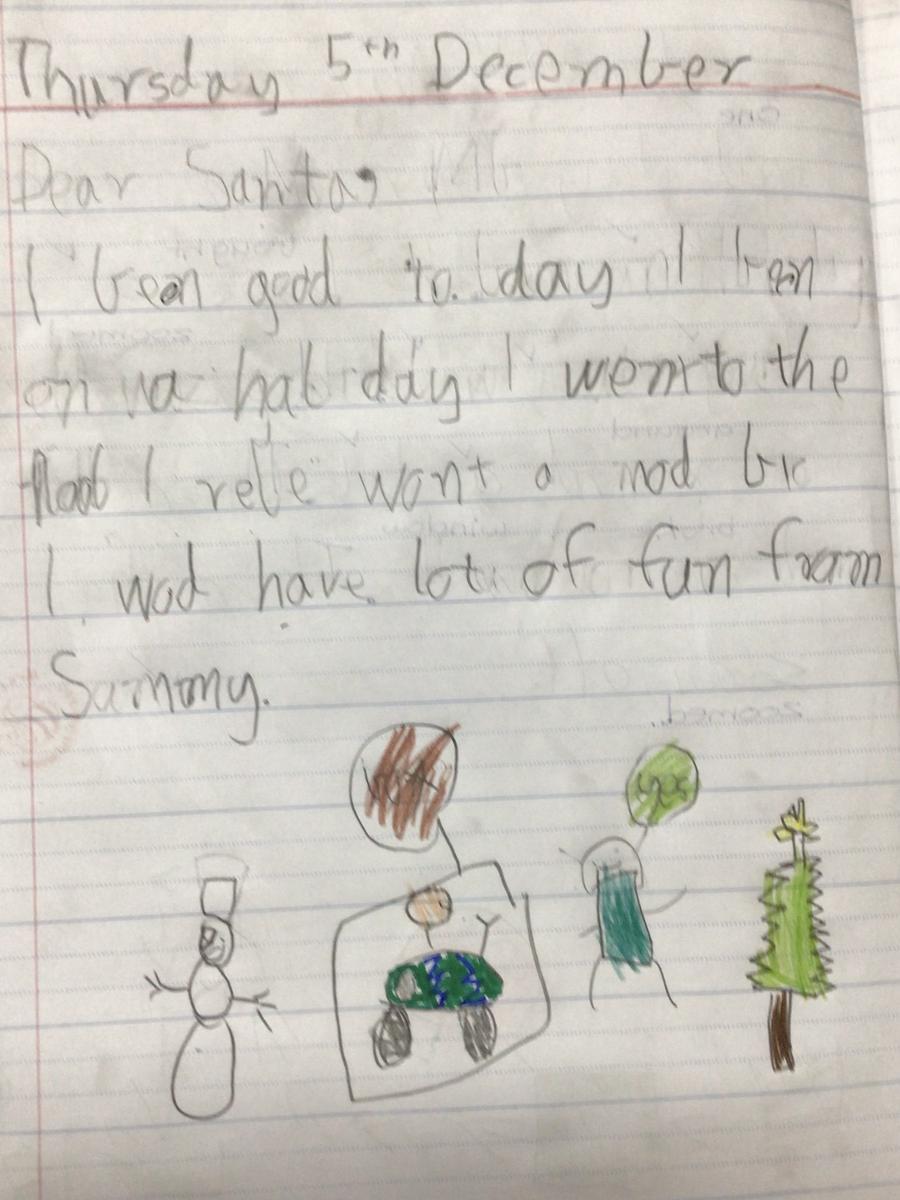 Thursday 5th December
Dear Santa,
I been good to day I ben
on a hal day I went to the
I rele want a mod bic
I wod have lot of fun fram
Sammy.
yes